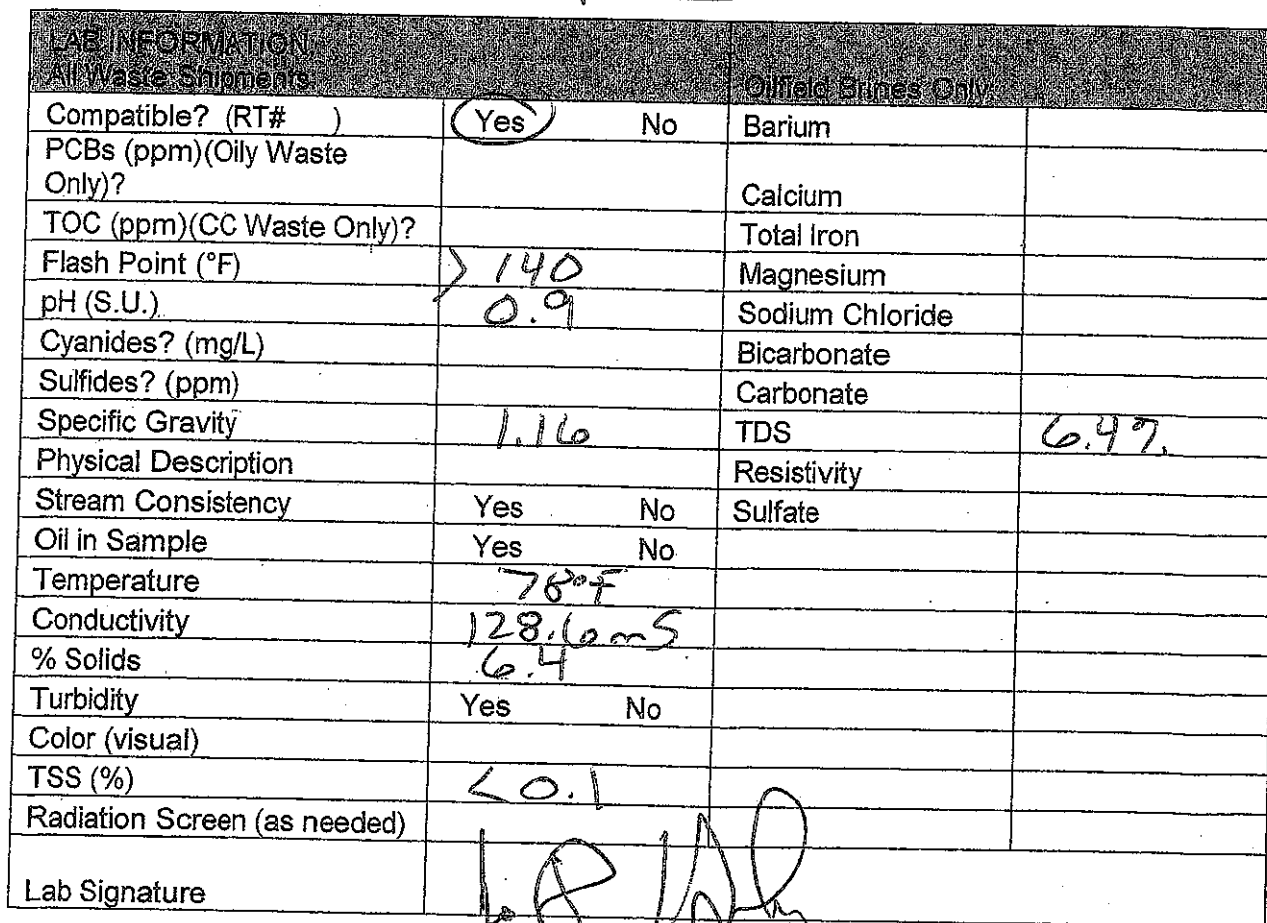 LAB INFORMATION
All Waste Shipments Oilfield Brines Only
Compatible? (RT# ) Yes No Barium
PCBs (ppm)(Oily Waste
Only)? Calcium
TOC (ppm)(CC Waste Only)? Total Iron
Flash Point (°F) > 140 Magnesium
pH (S.U.) 0.9 Sodium Chloride
Cyanides? (mg/L) Bicarbonate
Sulfides? (ppm) Carbonate
Specific Gravity 1.16 TDS 6.4%
Physical Description Resistivity
Stream Consistency Yes No Sulfate
Oil in Sample Yes No
Temperature 78°F
Conductivity 128.6 mS
% Solids 6.4
Turbidity Yes No
Color (visual)
TSS (%) <0.1
Radiation Screen (as needed)
Lab Signature